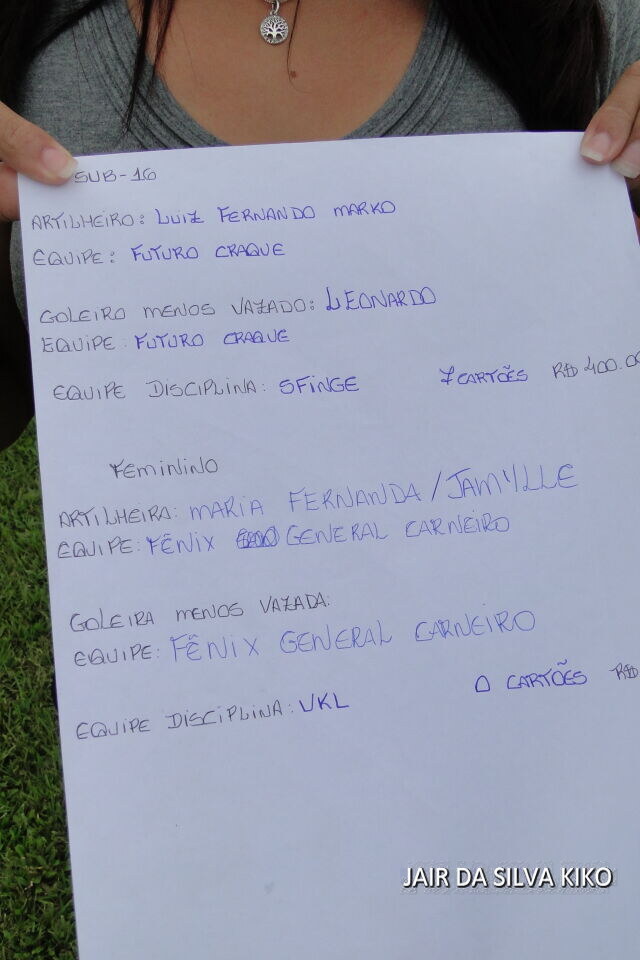 SUB-16
ARTILHEIRO: LUIZ FERNANDO MARKO
EQUIPE: FUTURO CRAQUE
GOLEIRO MENOS VAZADO: LEONARDO
EQUIPE: FUTURO CRAQUE
EQUIPE DISCIPLINA: SFINGE 7 CARTÕES R$ 400.00
FEMININO
ARTILHEIRA: MARIA FERNANDA / JAMYLLE
EQUIPE: FÊNIX GENERAL CARNEIRO
GOLEIRA MENOS VAZADA:
EQUIPE: FÊNIX GENERAL CARNEIRO
EQUIPE DISCIPLINA: VKL 0 CARTÕES R$
JAIR DA SILVA KIKO